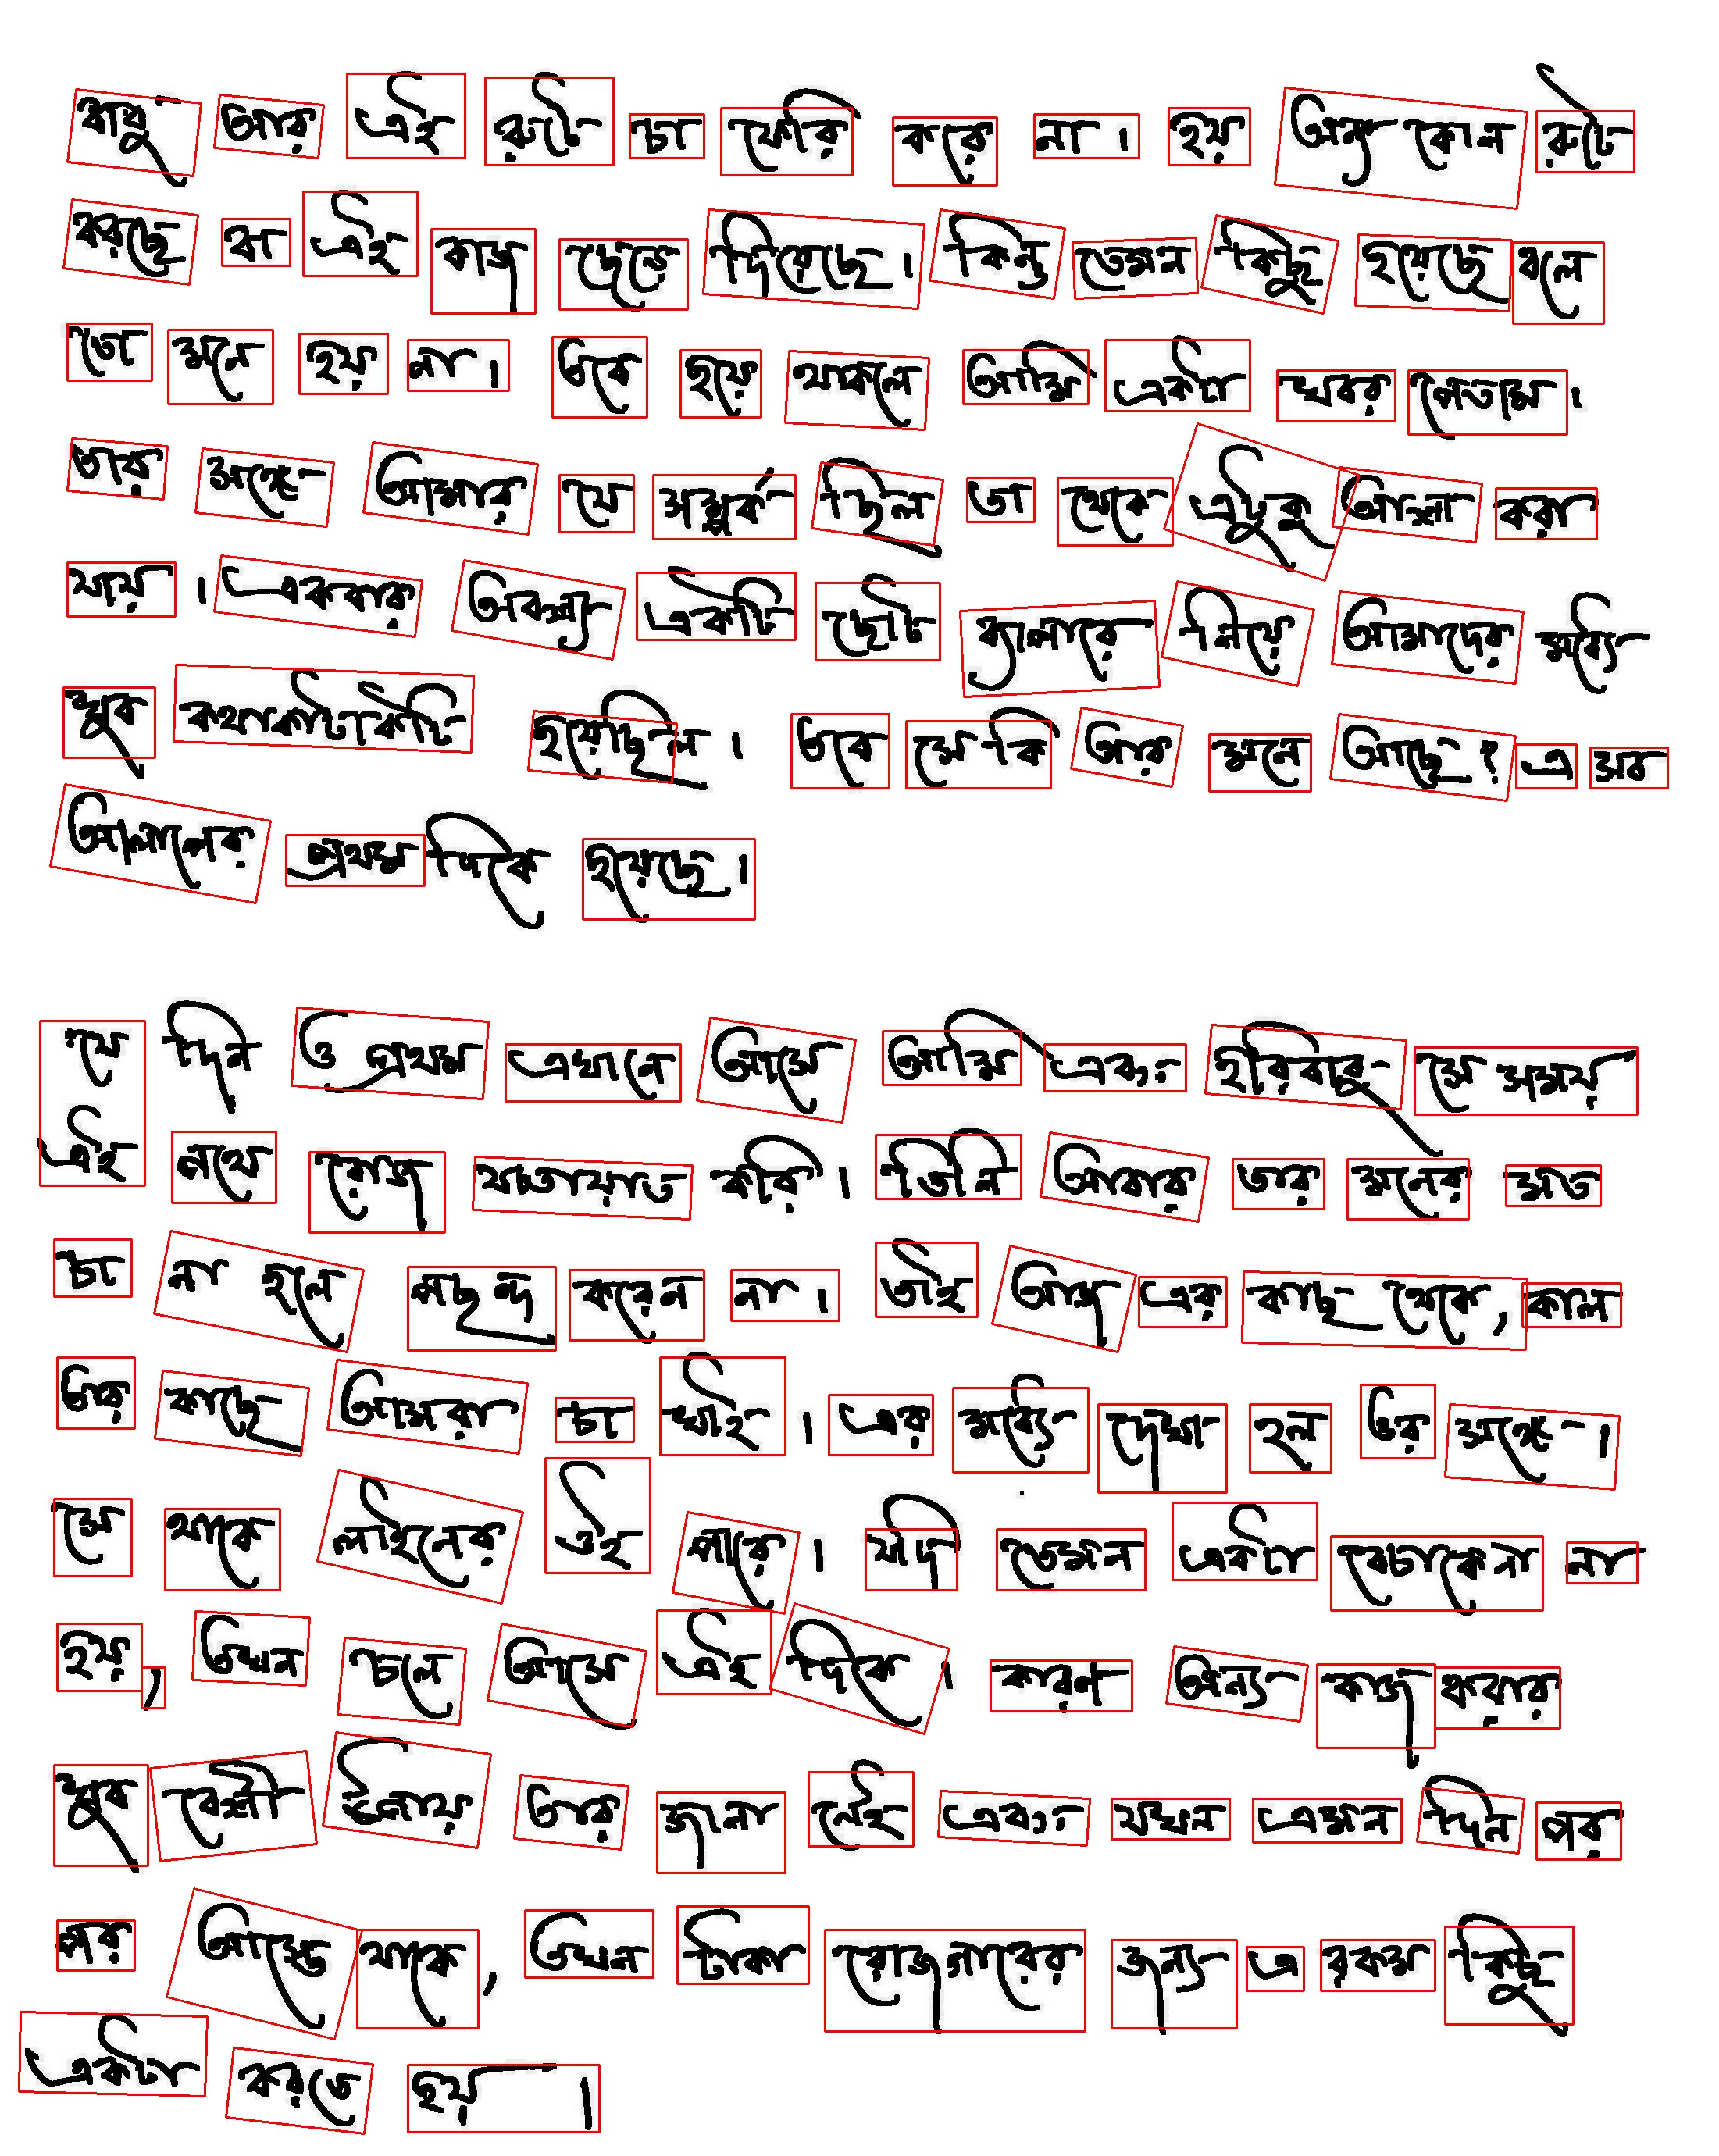 বাপ্পু আর এই রুটে চা ফেরি করে না। হয় অন্য কোন রুটে
করছে বা এই কাজ ছেড়ে দিয়েছে। কিন্তু তেমন কিছু হয়েছে বলে
তো মনে হয় না। তবে হয়ে থাকলে আমি একটা খবর পেতাম।
তার সঙ্গে আমার যে সম্পর্ক ছিল তা থেকে এটুকু আশা করা
যায়। একবার অবশ্য একটি ছোট ব্যাপারে নিয়ে আমাদের মধ্যে
খুব কথাকাটাকাটি হয়েছিল। তবে সে কি আর মনে আছে? এ সব
আলাপের প্রথম দিকে হয়েছে।
যে দিন ও প্রথম এখানে আসে আমি এবং হরিবাবু সে সময়
এই পথে রোজ যাতায়াত করি। তিনি আবার তার মনের মত
চা না হলে পছন্দ করেন না। তাই আজ এর কাছ থেকে, কাল
তার কাছে আমরা চা খাই। এর মধ্যে দেখা হল ওর সঙ্গে।
সে থাকে লাইনের ওই পারে। যদি তেমন একটা বেচাকেনা না
হয়, তখন চলে আসে এই দিকে। কারণ অন্য কাজ করবার
খুব বেশী উপায় তার জানা নেই এবং যখন এমন দিন পর
পর আসতে থাকে, তখন টাকা রোজগারের জন্য এ রকম কিছু
একটা করতে হয়।